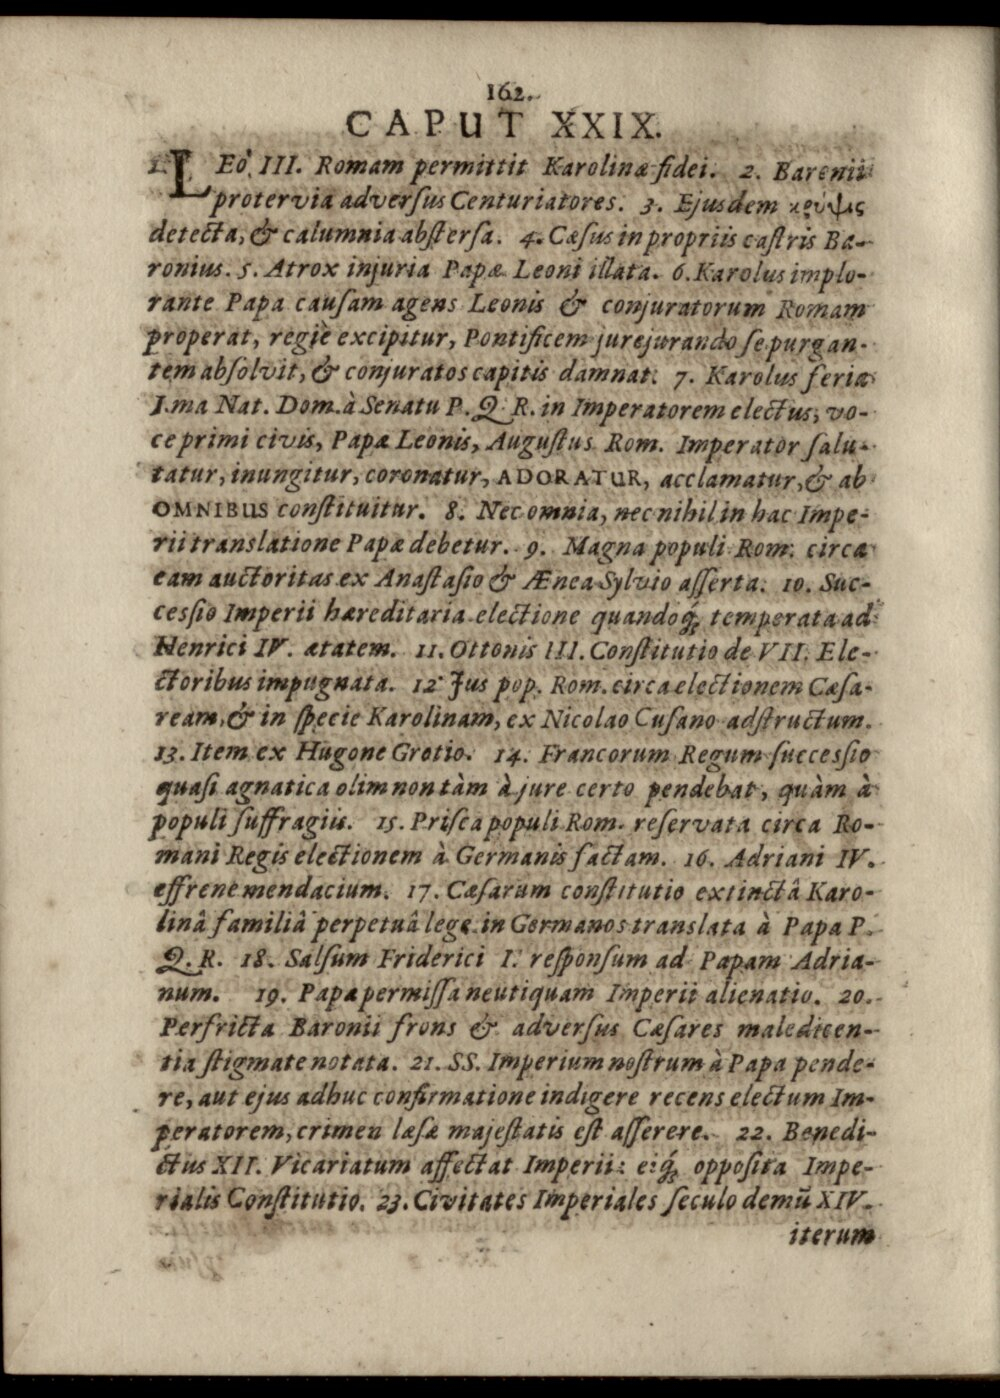 162.
CAPUT XXIX.
1. LEo III. Romam permittit Karolinæ fidei. 2. Barenii
protervia adverſus Centuriatores. 3. Ejusdem κρύψις
detecta, & calumnia abſterſa. 4. Cæſus in propriis caſtris Ba-
ronius. 5. Atrox injuria Papæ Leoni illata. 6. Karolus implo-
rante Papa cauſam agens Leonis & conjuratorum Romam
properat, regiè excipitur, Pontificem jurejurando ſe purgan-
tem abſolvit, & conjuratos capitis damnat. 7. Karolus feria
I.ma Nat. Dom. à Senatu P. Q. R. in Imperatorem electus, vo-
ce primi civis, Papæ Leonis, Auguſtus Rom. Imperator ſalu-
tatur, inungitur, coronatur, ADORATUR, acclamatur, & ab
OMNIBUS conſtituitur. 8. Nec omnia, nec nihil in hac Impe-
rii translatione Papæ debetur. 9. Magna populi Rom. circa
eam auctoritas ex Anaſtaſio & Ænea Sylvio aſſerta. 10. Suc-
ceſſio Imperii hæreditaria electione quandoq́; temperata ad
Henrici IV. ætatem. 11. Ottonis III. Conſtitutio de VII. Ele-
ctoribus impugnata. 12. Jus pop. Rom. circa electionem Cæſa-
ream, & in ſpecie Karolinam, ex Nicolao Cuſano adſtructum.
13. Item ex Hugone Grotio. 14. Francorum Regum ſucceſſio
quaſi agnatica olim non tàm à jure certo pendebat, quàm à
populi ſuffragiis. 15. Priſca populi Rom. reſervata circa Ro-
mani Regis electionem à Germanis factam. 16. Adriani IV.
effrene mendacium. 17. Cæſarum conſtitutio extinctâ Karo-
linâ familiâ perpetuâ lege in Germanos translata à Papa P.
Q. R. 18. Salſum Friderici I. reſponſum ad Papam Adria-
num. 19. Papa permiſſa neutiquam Imperii alienatio. 20.
Perfricta Baronii frons & adverſus Cæſares maledicen-
tia ſtigmate notata. 21. SS. Imperium noſtrum à Papa pende-
re, aut ejus adhuc confirmatione indigere recens electum Im-
peratorem, crimen læſæ majeſtatis eſt aſſerere. 22. Benedi-
ctus XII. Vicariatum affectat Imperii: eiq́; oppoſita Impe-
rialis Conſtitutio. 23. Civitates Imperiales ſeculo demū XIV.
iterum